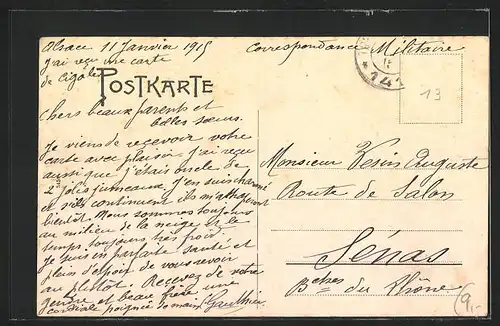 Alsace 11 Janvier 1915
j'ai reçu une carte
de Cigole
Correspondance Militaire
141
13
POSTKARTE
Chers beaux parents et
belles sœurs.
Je viens de recevoir votre
carte avec plaisir j'ai reçu
aussi que j'étais oncle de
2 jolis jumeaux j'en suis charmé
et s'ils continuent ils m'attraperont
bientôt. Nous sommes toujours
au milieu de la neige et le
temps toujours très froid.
Je suis en parfaite santé et
plein d'espoir de vous revoir
au plutôt. Recevez de votre
gendre et beau frère une
cordiale poignée de mains Gauthier
Monsieur Vesin Auguste
Route de Salon
Sénas
Bches du Rhône
9,-